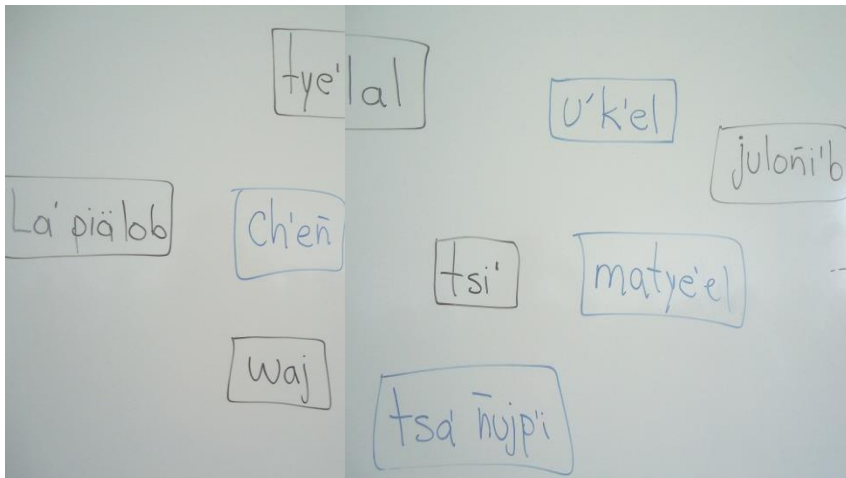 tye'lal
u'k'el
juloñi'b
La' piälob
ch'eñ
tsi'
matye'el
waj
tsa' ñujp'i